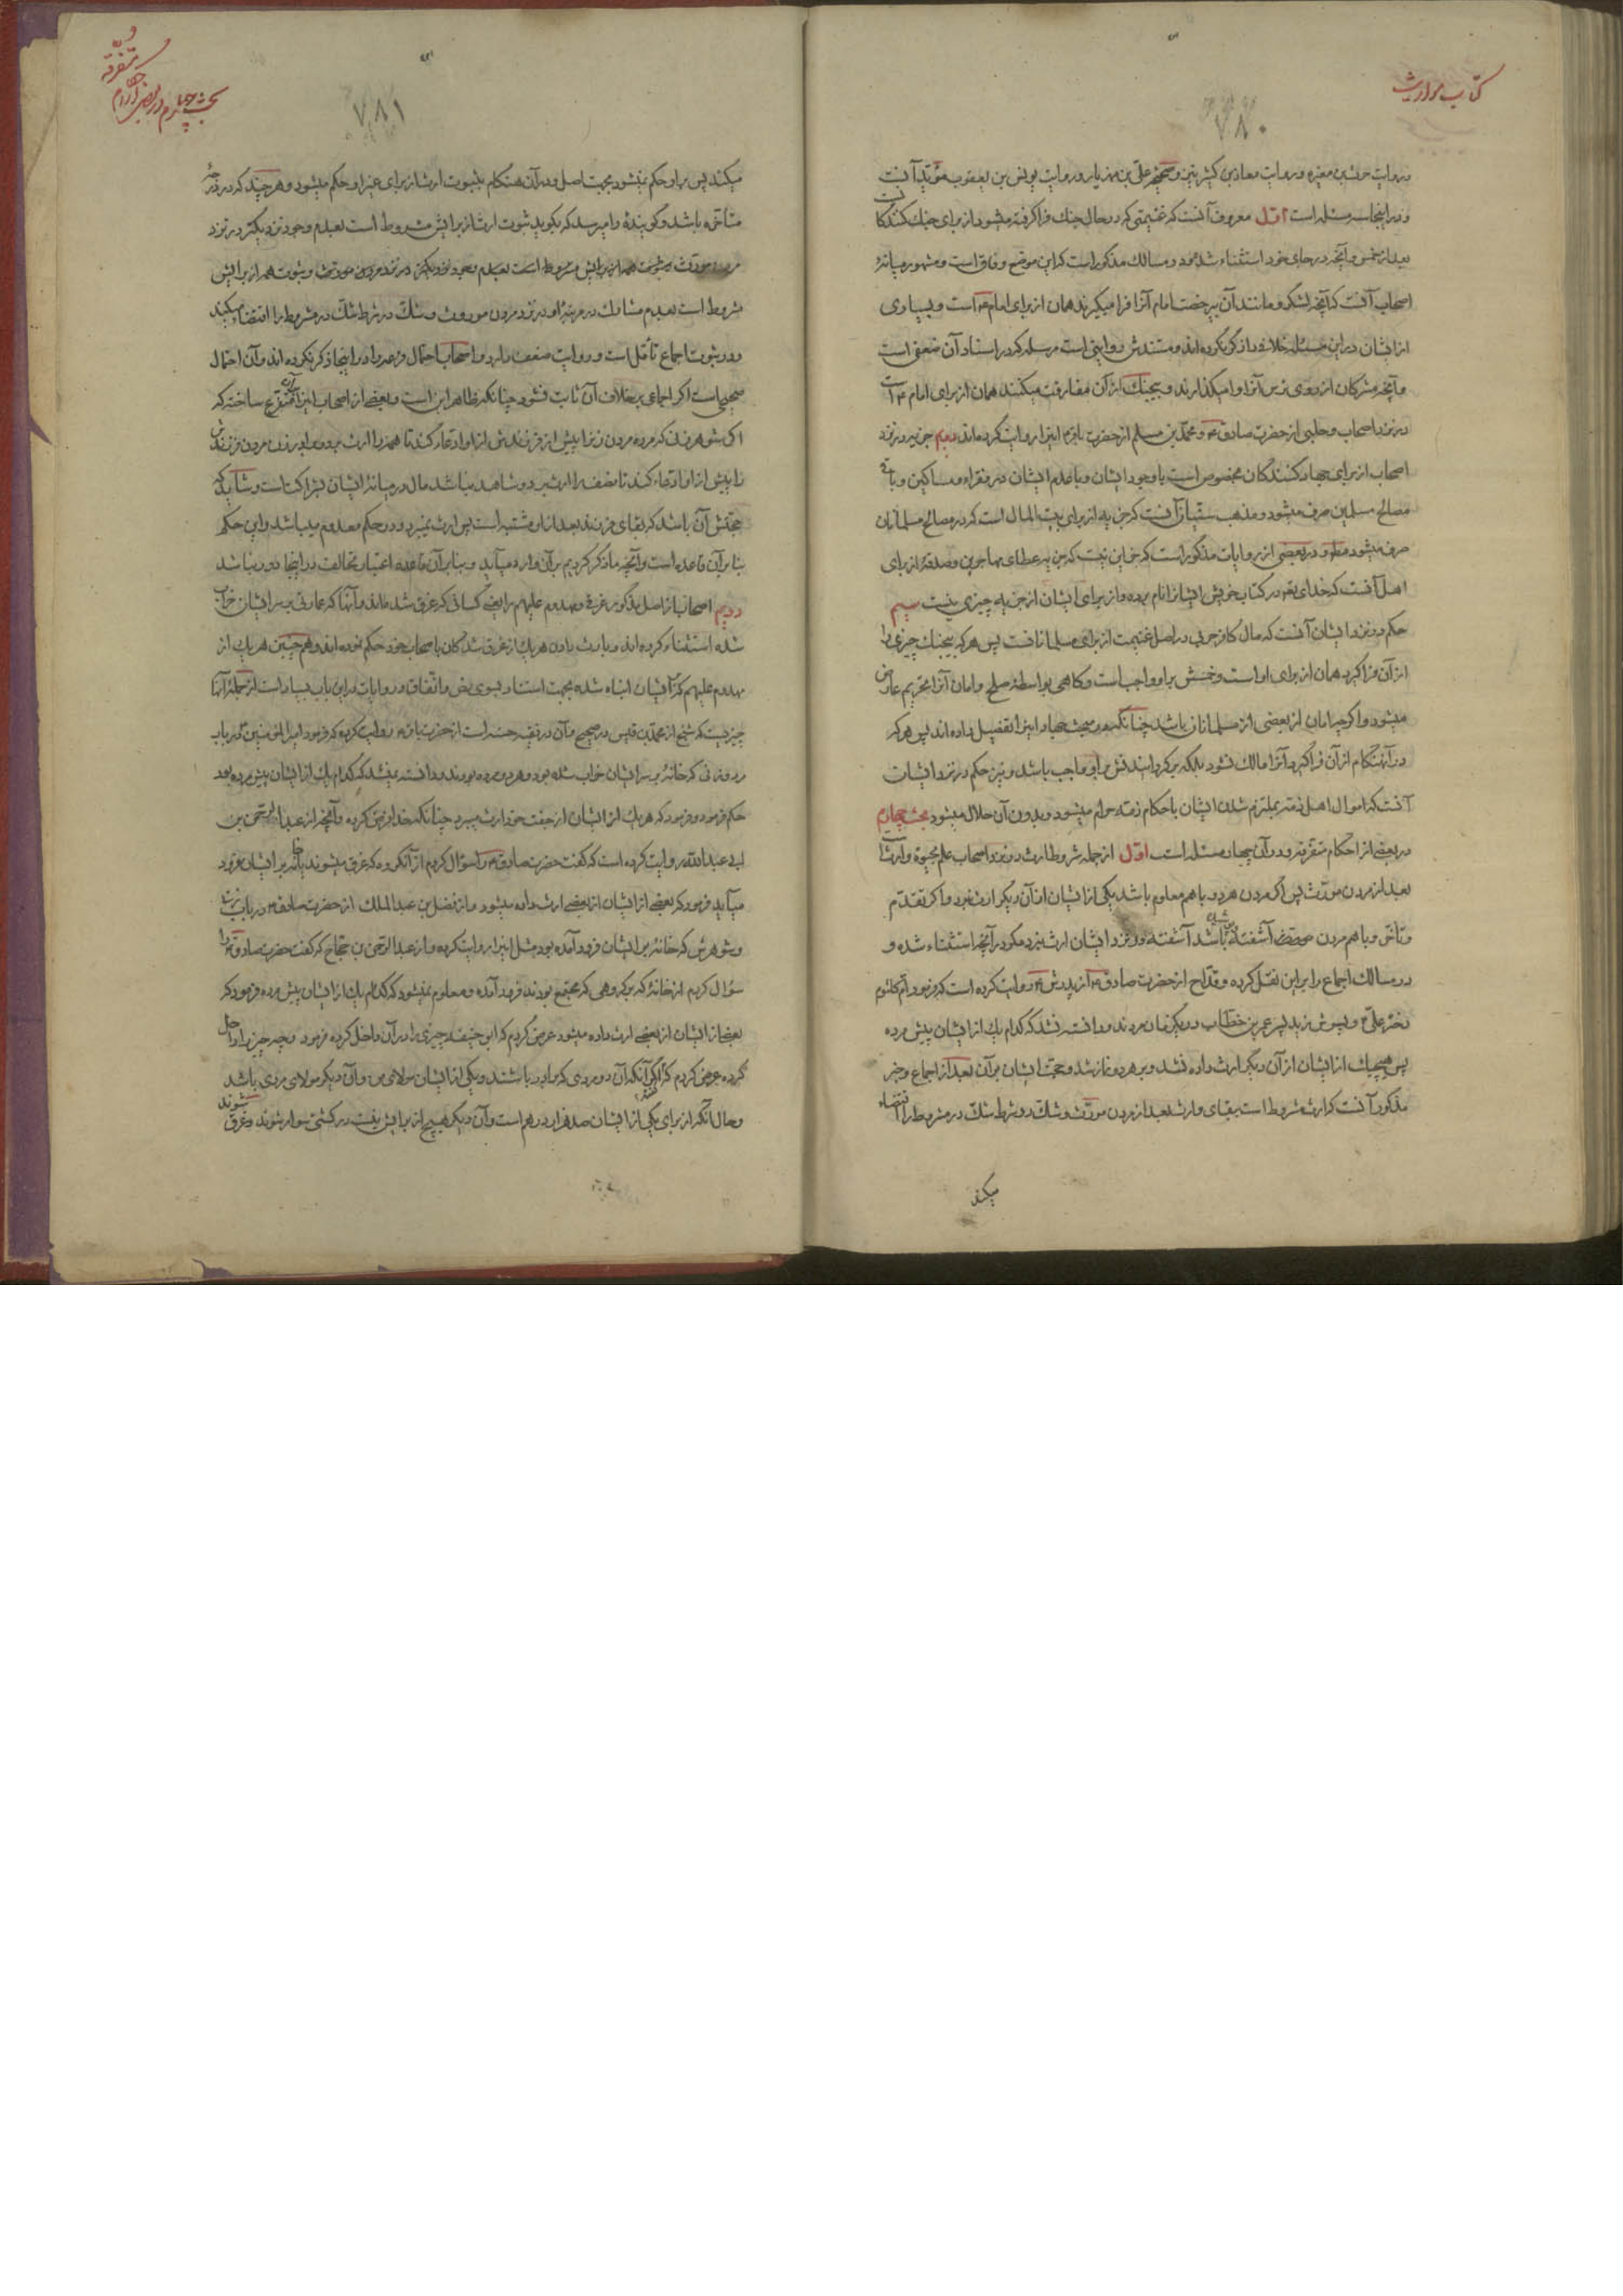 کتاب مواریث
۷۸۰
و روایت حرث بن مغیره و روایت معاذ بن کثیر نیز و صحیحهٔ علی بن مهزیار و روایت یونس بن یعقوب مؤید آنست
و در اینجا سه مسئله است اول معروف آنست که غنیمتی که در حال جنك فرا گرفته میشود از برای جنك کنندگانست
بعد از خمس و آنچه در جای خود استثناء شده و در مسالك مذکور است که این موضع وفاق است و مشهور میانهٔ
اصحاب آنست که آنچه لشکر و مانند آن بی رخصت امام آنرا فرا میگیرند همان از برای امام ع است و بسیاری
از ایشان در این مسئله خلافی ذکر نکرده اند و مستندش روایتی است مرسله که در اسناد آن ضعفی است
و آنچه مشرکان از روی ترس آنرا وامیگذارند و بیجنك از آن مفارقت میکنند همان از برای امام ع است
در نزد اصحاب و حلبی از حضرت صادق ع و محمد بن مسلم از حضرت باقر ع اینرا روایت کرده اند دویم جزیه در نزد
اصحاب از برای جهاد کنندگان مخصوص است با وجود ایشان و با عدم ایشان در فقراء و مساکین و باقی
مصالح مسلمین صرف میشود و مذهب سنیان آنست که جزیه از برای بیت المال است که در مصالح مسلمانان
صرف میشود مطلقا و در بعضی از روایات مذکور است که جز این نیست که جزیه عطای مهاجرین و صدقه از برای
اهل آنست که خدای تعه در کتاب خویش ایشانرا نام برده و از برای ایشان از جزیه چیزی نیست سیم
حکم در نزد ایشان آنست که مال کافر حربی در اصل غنیمت از برای مسلمانانست پس هر که بیجنك چیزی را
از آن فرا گیرد همان از برای او است و خمس بر او واجب است و گاهی بواسطهٔ صلح و امان آنرا تحریم عارض
میشود و اگرچه امان از بعضی از مسلمانان باشد چنانکه در مبحث جهاد اینرا تفصیل داده اند پس هر که
در آنهنگام از آن فرا گیرد آنرا مالك نشود بلکه برگردانیدنش بر او واجب باشد و نیز حکم در نزد ایشان
آنست که اموال اهل ذمه بملتزم نشدن ایشان باحکام ذمه حرام میشود و بدون آن حلال میشود بحث چهارم
در بعضی از احکام متفرقه و در آن چهار مسئله است اول از جمله شروط ارث در نزد اصحاب علم بحیوة وارثست
بعد از مردن مورث پس اگر مردن هر دو با هم معلوم باشد یکی از ایشان از آن دیگر ارث نبرد و اگر تقدم
و تأخر و با هم مردن آشفته باشد در نزد ایشان ارث نبرد مگر در آنچه استثناء شده و
در مسالك اجماع را بر این نقل کرده و قداح از حضرت صادق ع از پدرش ع روایت کرده است که فرمود ام کلثوم
دختر علی ع و پسرش زید پسر عمر بن خطاب در یکزمان مردند و دانسته نشد که کدام یك از ایشان پیش مرده
پس هیچیك از ایشان از آن دیگر ارث داده نشد و بر هر دو نماز شد و حجت ایشان بر آن بعد از اجماع و خبر
مذکور آنست که ارث مشروط است ببقای وارث بعد از مردن مورث و شك در شرط شك در مشروط را اقتضاء
میکند
بحث چهارم در بعضی از احکام
متفرقه
۷۸۱
میکند پس بر او حکم نمیشود بجهت اصل و در آن هنگام بثبوت ارث از برای غیر او حکم میشود و هر چند که در درجهٔ
متأخره باشد و گوینده را میرسد که بگوید ثبوت ارث از برایش مشروط است بعدم وجود نزدیکتر در نزد
مردن مورث و ثبوت همه از برایش
مشروط است بعدم مشارك در مرتبهٔ او در نزد مردن موروث و شك در شرط شك در مشروط را اقتضاء میکند
و در ثبوت اجماع تأمل است و روایت ضعف دارد و اصحاب احتمال قرعه را در اینجا ذکر نکرده اند و آن احتمال
صحیحی است اگر اجماعی بر خلاف آن ثابت نشود چنانکه ظاهر این است و بعضی از اصحاب اینرا بر آن متفرع ساخته که
اگر شوهر زن که مرده مردن زنرا پیش از فرزندش از او ادعاء کند تا همه را ارث برد و برادر زن مردن فرزندش
را پیش از او ادعاء کند تا نصف را ارث برد و شاهد نباشد مال در میانهٔ ایشان بشراکت است و شاید که
حجتش آن باشد که بقای فرزند بعد از مادر مشتبه است پس ارث نمیبرد و در حکم معدوم میباشد و این حکم
بنا بر آن قاعده است و آنچه ما ذکر کردیم بر آن وارد میآید و بنا بر آن قاعده اعتبار تحالف در اینجا دور نباشد
دویم اصحاب از اصل مذکور غرقی و مهدوم علیهم را یعنی کسانی که غرق شده اند و آنها که عمارتی بر سر ایشان خراب
شده استثناء کرده اند و بارث بردن هر یك از غرق شدگان با صحاب خود حکم نموده اند و همچنین هر یك از
مهدوم علیهم که کار ایشان اشتباه شده بجهت استناد بسوی نص و اتفاق و روایات در این باب بسیار است از جملهٔ آنها
چیزیست که شیخ از محمد بن قیس در صحیح و آن در فقیه حسنه است از حضرت باقر ع روایت کرده که فرمود امیر المؤمنین ع در باب
مرد و زنی که خانه بر سر ایشان خراب شده بود و هر دو مرده بودند و دانسته نمیشد که کدام یك از ایشان پیش مرده بود
حکم فرمود و فرمود که هر یك از ایشان از جفت خود ارث میبرد چنانکه خدا فرض کرده و آنچه از عبد الرحمن بن
ابی عبد الله روایت کرده است که گفت حضرت صادق ع را سؤال کردم از آنگروه که غرق میشوند یا خانه بر ایشان فرود
میآید فرمود که بعضی از ایشان از بعضی ارث داده میشود و از فضل بن عبد الملك از حضرت صادق ع در باب زن
و شوهرش که خانه بر ایشان فرود آمده بود مثل اینرا روایت کرده و از عبد الرحمن بن حجاج که گفت حضرت صادق ع را
سؤال کردم از خانه که بر گروهی که مجتمع بودند فرود آمده و معلوم نمیشود که کدام یك از ایشان پیش مرده فرمود که
بعضی از ایشان از بعضی ارث داده میشود عرض کردم که ابو حنیفه چیزی را در آن داخل کرده فرمود و چه چیز را داخل
کرده عرض کردم که اگر آنکه آن دو مردی که برادر باشند و یکی از ایشان مولای من و آن دیگر مولای مردی باشد
و حال آنکه از برای یکی از ایشان صد هزار درهم است و آن دیگر هیچ از برایش نیست در کشتی سوار شوند و غرق شوند